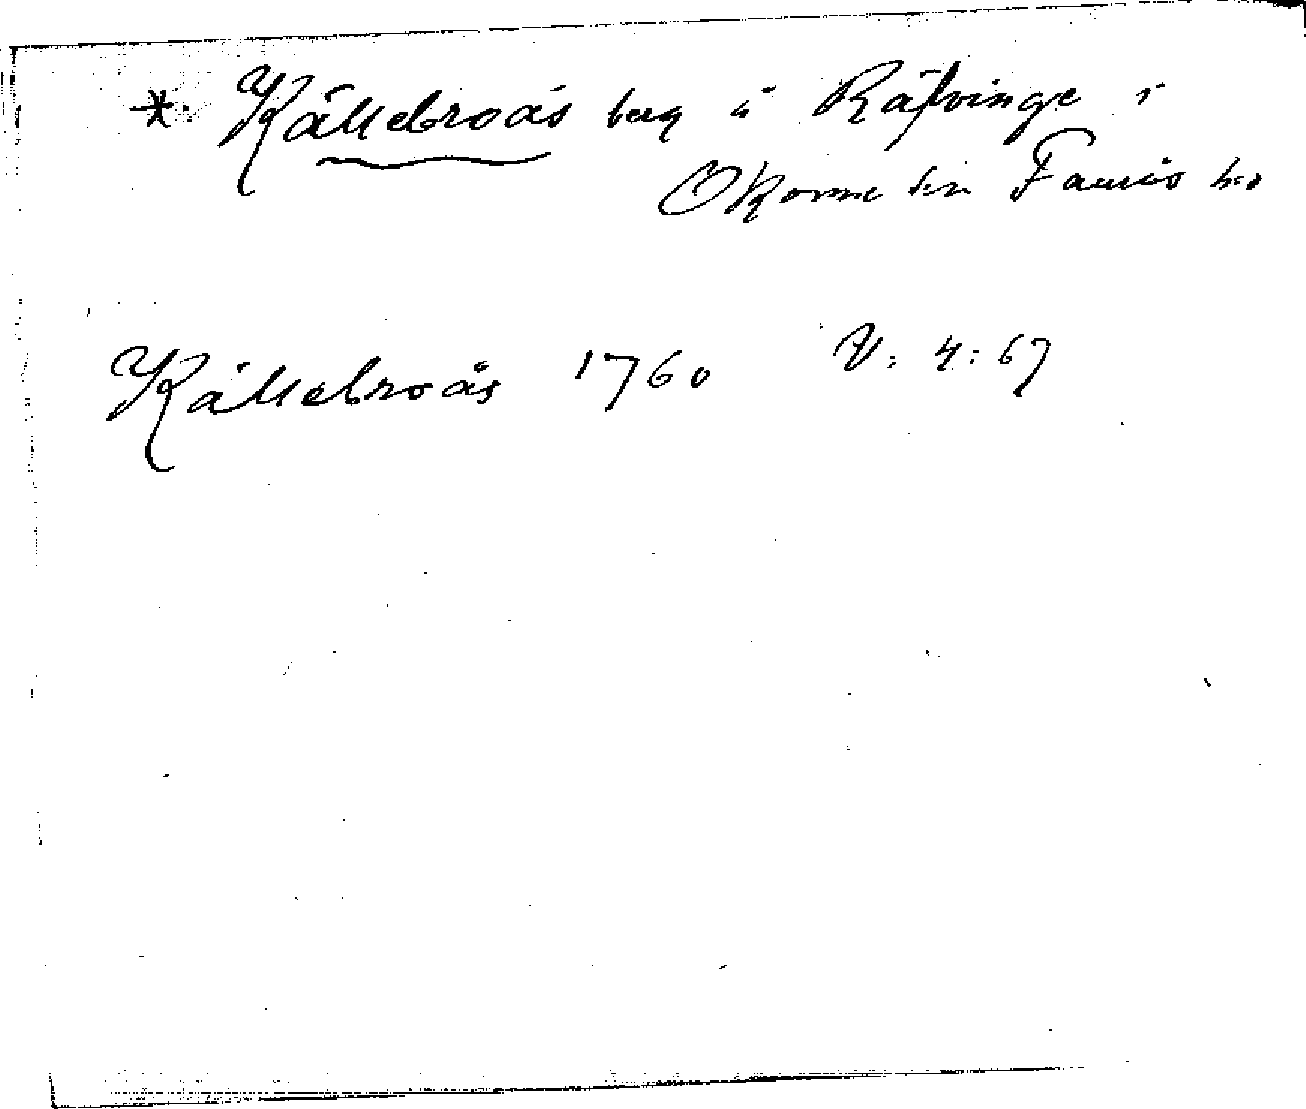 * Källebroås beg å Räfvinge i
Okome sn Faurås hd
Källebroås 1760 V: 4: 67